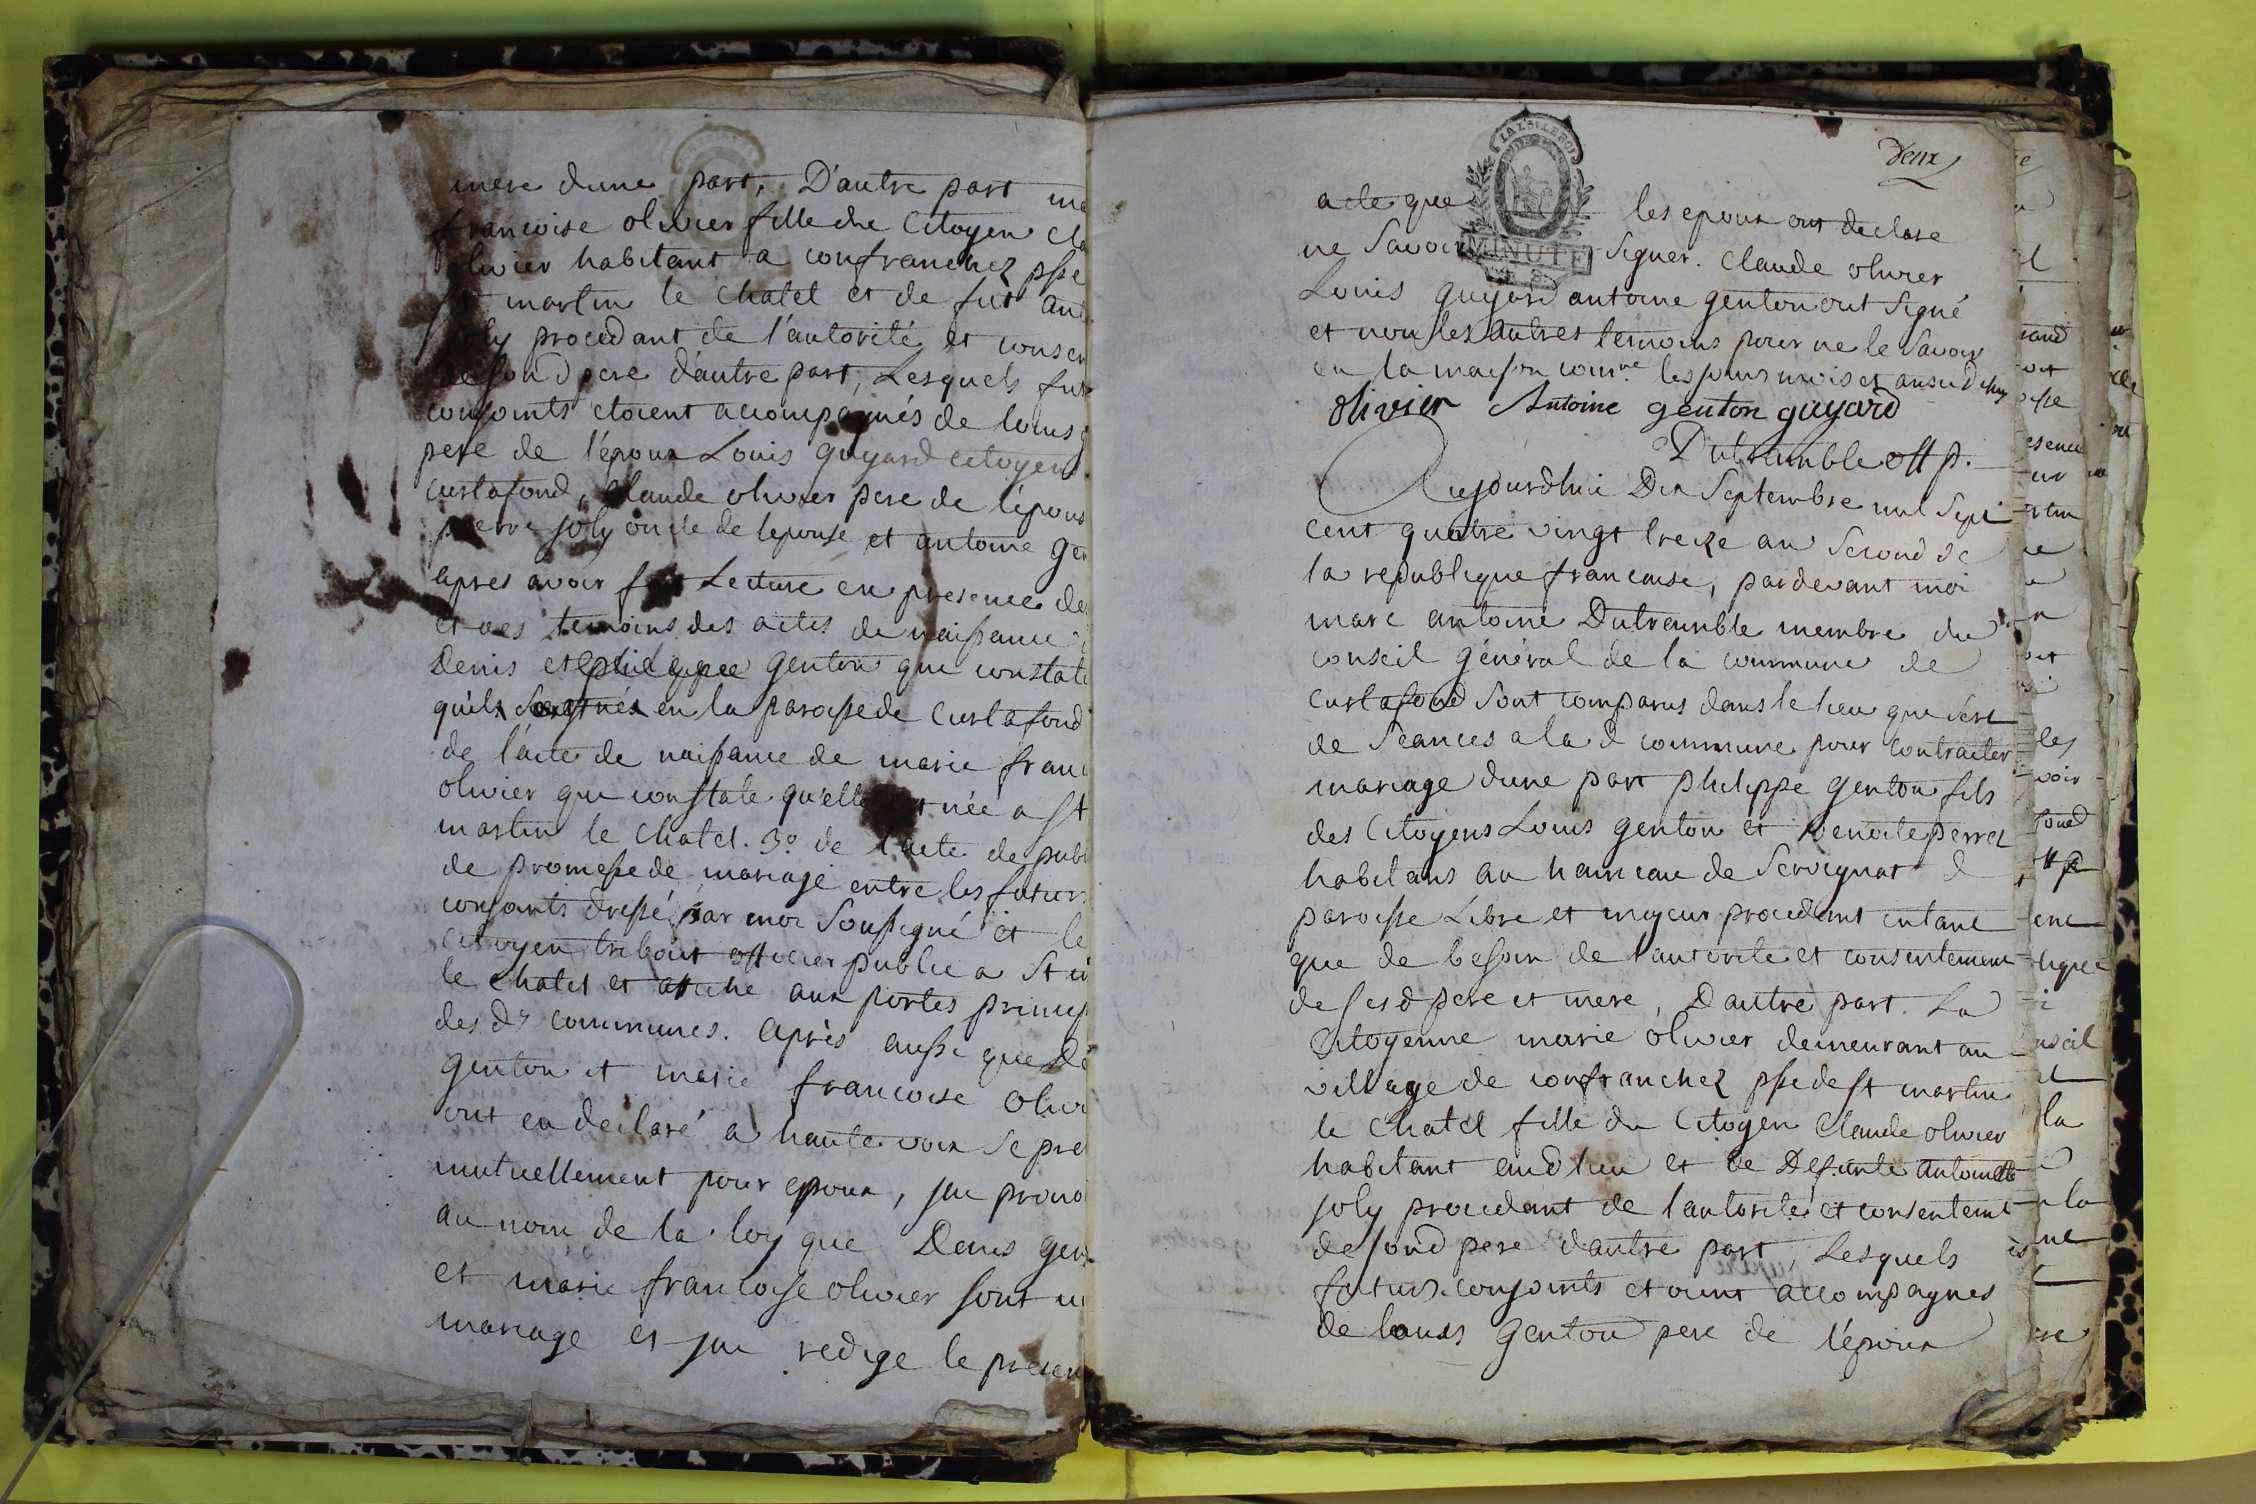 mere dune part, D'autre part
francoise olivier fille du Citoyen
olivier habitant a confranchez psse
martin le chatel et de fut
joly procedant de l'autorité et
de son d pere d'autre part, Lesquels
conjoints etoient accompagnés de louis
pere de l'epoux Louis guyard citoyen
curtafond, Claude olivier pere de l'épous
pierre joly oncle de lepouse et antoine
apres avoir fait Lecture en presence
et des temoins des actes de naissance
Denis et philippe genton que constate
qu'ils sont nés en la paroisse de curtafond
de l'acte de naissance de marie
olivier que constate qu'elle est née a st
martin le chatel. 3o de l'acte de
de promesse de mariage entre les futurs
conjoints dressé par moi soussigné et le
citoyen officier public a St
le chatel et affiche aux portes
des ds communes. après aussi que
genton et marie francoise
ont eu declaré a haute voix se
mutuellement pour epoux, jai
au nom de la loy que Denis
et marie francoise olivier sont
mariage et jai redige le
Deux
LA LOI LE ROI
MINUTE
acte que les epoux ont declare
ne savoir signer. Claude olivier
Louis guyard antoine genton ont signé
et non les autres temoins pour ne le savoir
en la maison comne les jours mois et an
olivier Antoine genton guyard
Dutremble off p.
Aujourdhui Dix septembre mil sept
cent quatre vingt treize an second de
la republique francaise, pardevant moi
marc antoine Dutremble membre du
conseil général de la commune de
curtafond sont comparus dans le lieu que sert
de seances a la d commune pour contracter
mariage dune part philippe genton fils
des Citoyens Louis genton et benoite perret
habitans au hameau de servignat d
paroisse Libre et majeur procedant entant
que de besoin de l'autorite et consentement
de ses d pere et mere, D'autre part. La
Citoyenne marie olivier demeurant au
village de confranchez psse de st martin
le chatel fille du Citoyen Claude olivier
habitant aud lieu et de Defunte antoinette
joly procedant de l'autorité et consentemt
de son d pere d'autre part, Lesquels
futurs conjoints etoient accompagnes
de louis genton pere de l'époux